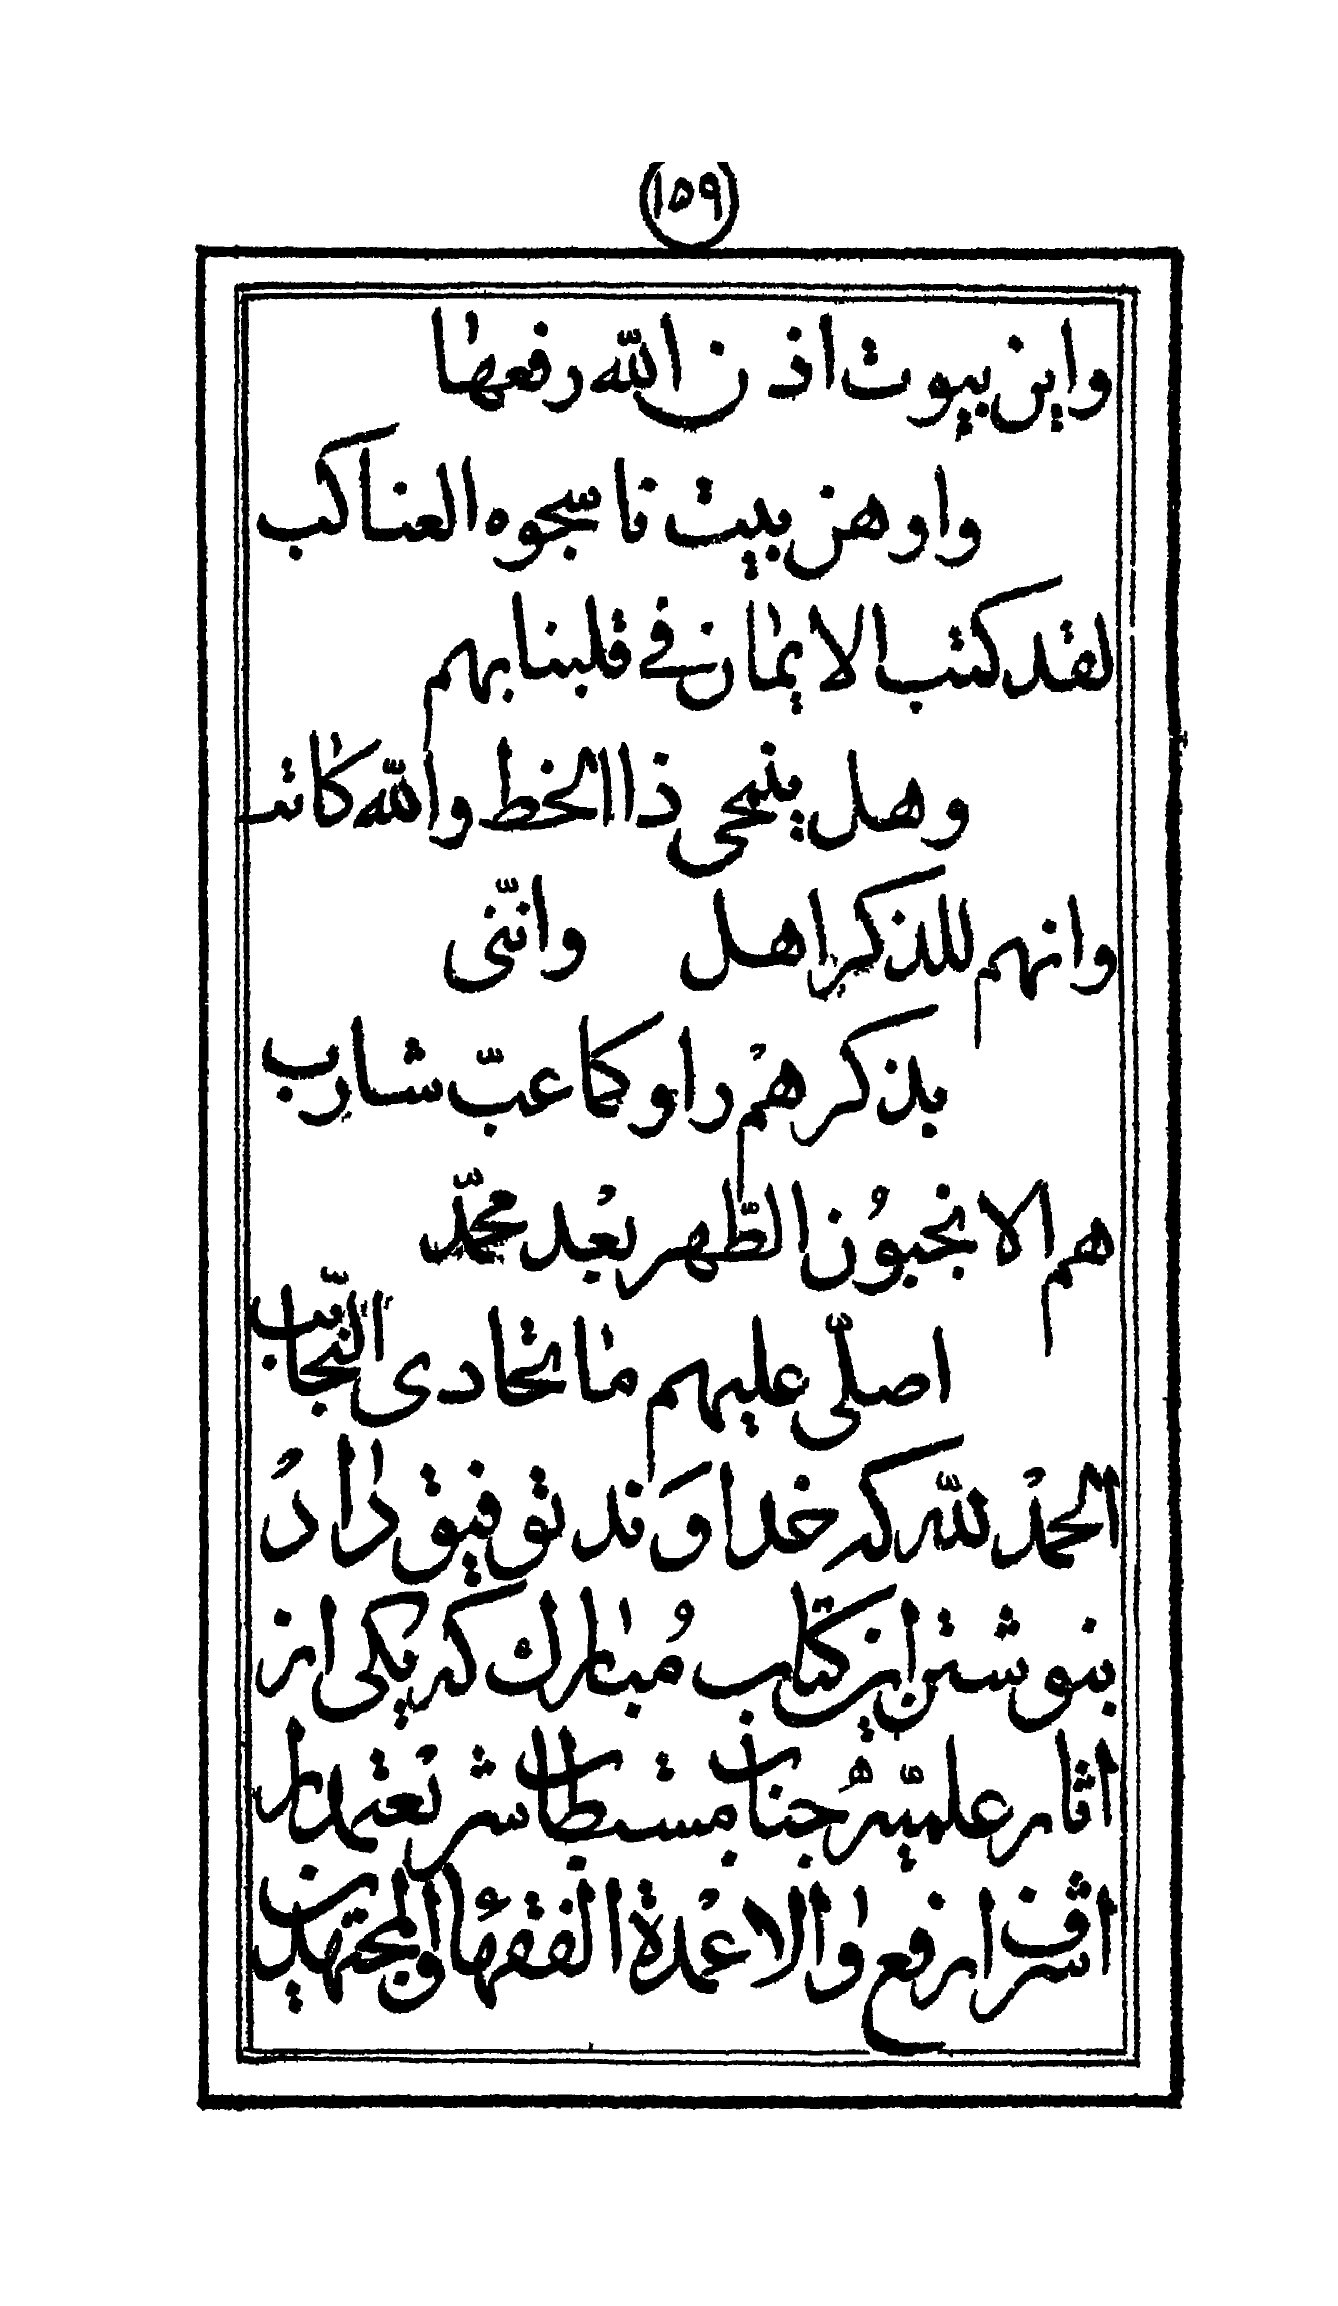 (١٥٩)
واين بيوت اذن الله رفعها
واوهن بيت ناسجوه العناكب
لقد كتب الايمان في قلبنا بهم
وهل ينمحى ذا الخط والله كاتب
وانهم للذكر اهل وانّنى
بذكرهم راو كما عبّ شارب
هم الانجبون الطّهر بعد محمّد
اصلّى عليهم ما تحادى النّجائب
الحمد لله كه خداوند توفيق داد
بنوشتن اين كتاب مبارك كه يكى از
اثار علميّه جناب مستطاب شريعتمدار
اشرف ارفع والا عمدة الفقهاء والمجتهدين